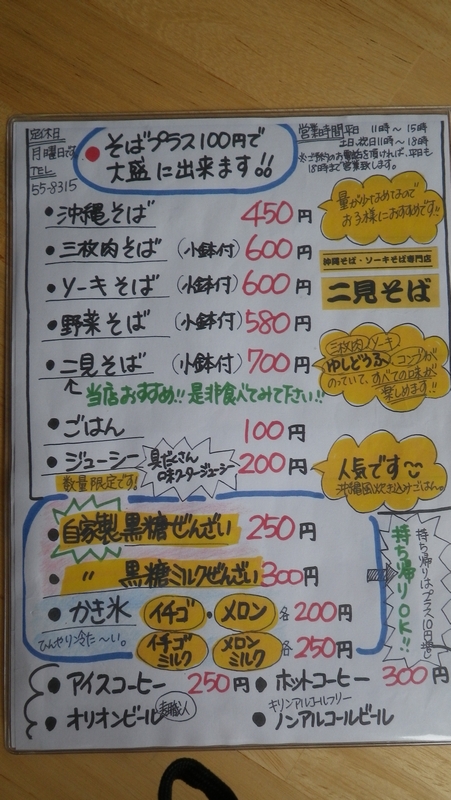 定休日
月曜日です
TEL
55-8315
●そばプラス100円で
大盛に出来ます!!
営業時間 平日 11時〜15時
土日、祝日11時〜18時
※ご予約のお電話を頂ければ、平日も
18時まで営業致します。
●沖縄そば 450円
量が少なめなので
お子様におすすめです!!
●三枚肉そば (小鉢付) 600円
●ソーキそば (小鉢付) 600円
沖縄そば・ソーキそば専門店
二見そば
●野菜そば (小鉢付) 580円
●二見そば (小鉢付) 700円
三枚肉、ソーキ
ゆしどうふ、コンブが
のっていて、すべての味が
楽しめます!!
↑当店おすすめ!!是非食べてみて下さい!!
●ごはん 100円
●ジューシー 200円
具だくさん
数量限定です!
人気です
沖縄風炊き込みごはん。
●自家製黒糖ぜんざい 250円
●〃 黒糖ミルクぜんざい 300円
●かき氷 イチゴ・メロン 各200円
ひんやり冷た〜い。
イチゴミルク メロンミルク 各250円
持ち帰りOK!!
持ち帰りはプラス10円増し
●アイスコーヒー 250円 ●ホットコーヒー 300円
●オリオンビール 麦職人
キリンアルコールフリー
●ノンアルコールビール